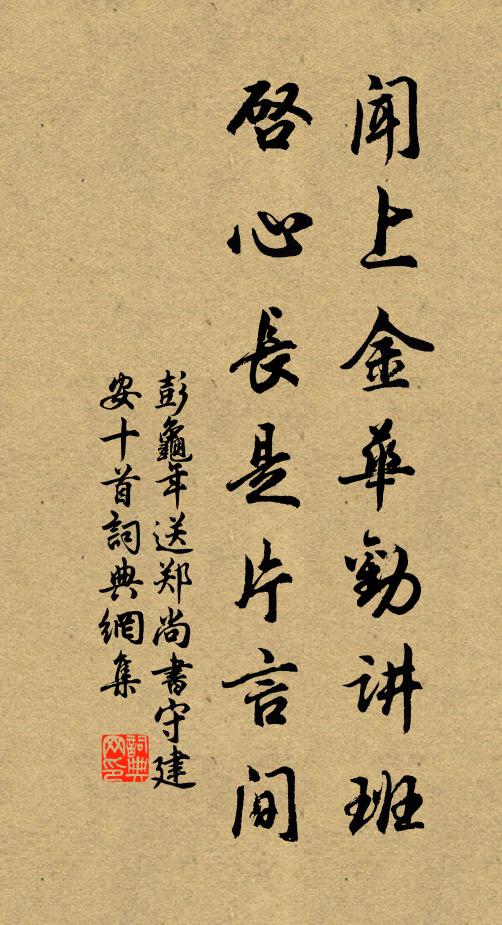 闻上金华劝讲班
启心长是片言间
彭龜年送郑尚書守建
安十首詞典網集
詞典网印